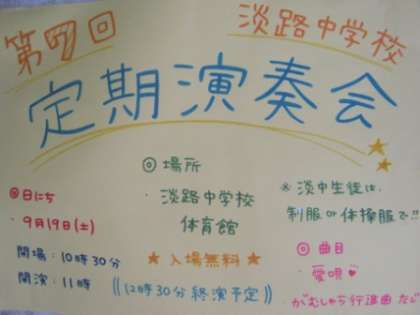 第7回
淡路中学校
定期演奏会
◎日にち
・9月19日(土)
開場:10時30分
開演:11時
◎場所
・淡路中学校
体育館
★入場無料★
((12時30分終演予定))
※淡中生徒は、
制服or体操服で!!
◎曲目
・愛唄♥
・がむしゃら行進曲 など